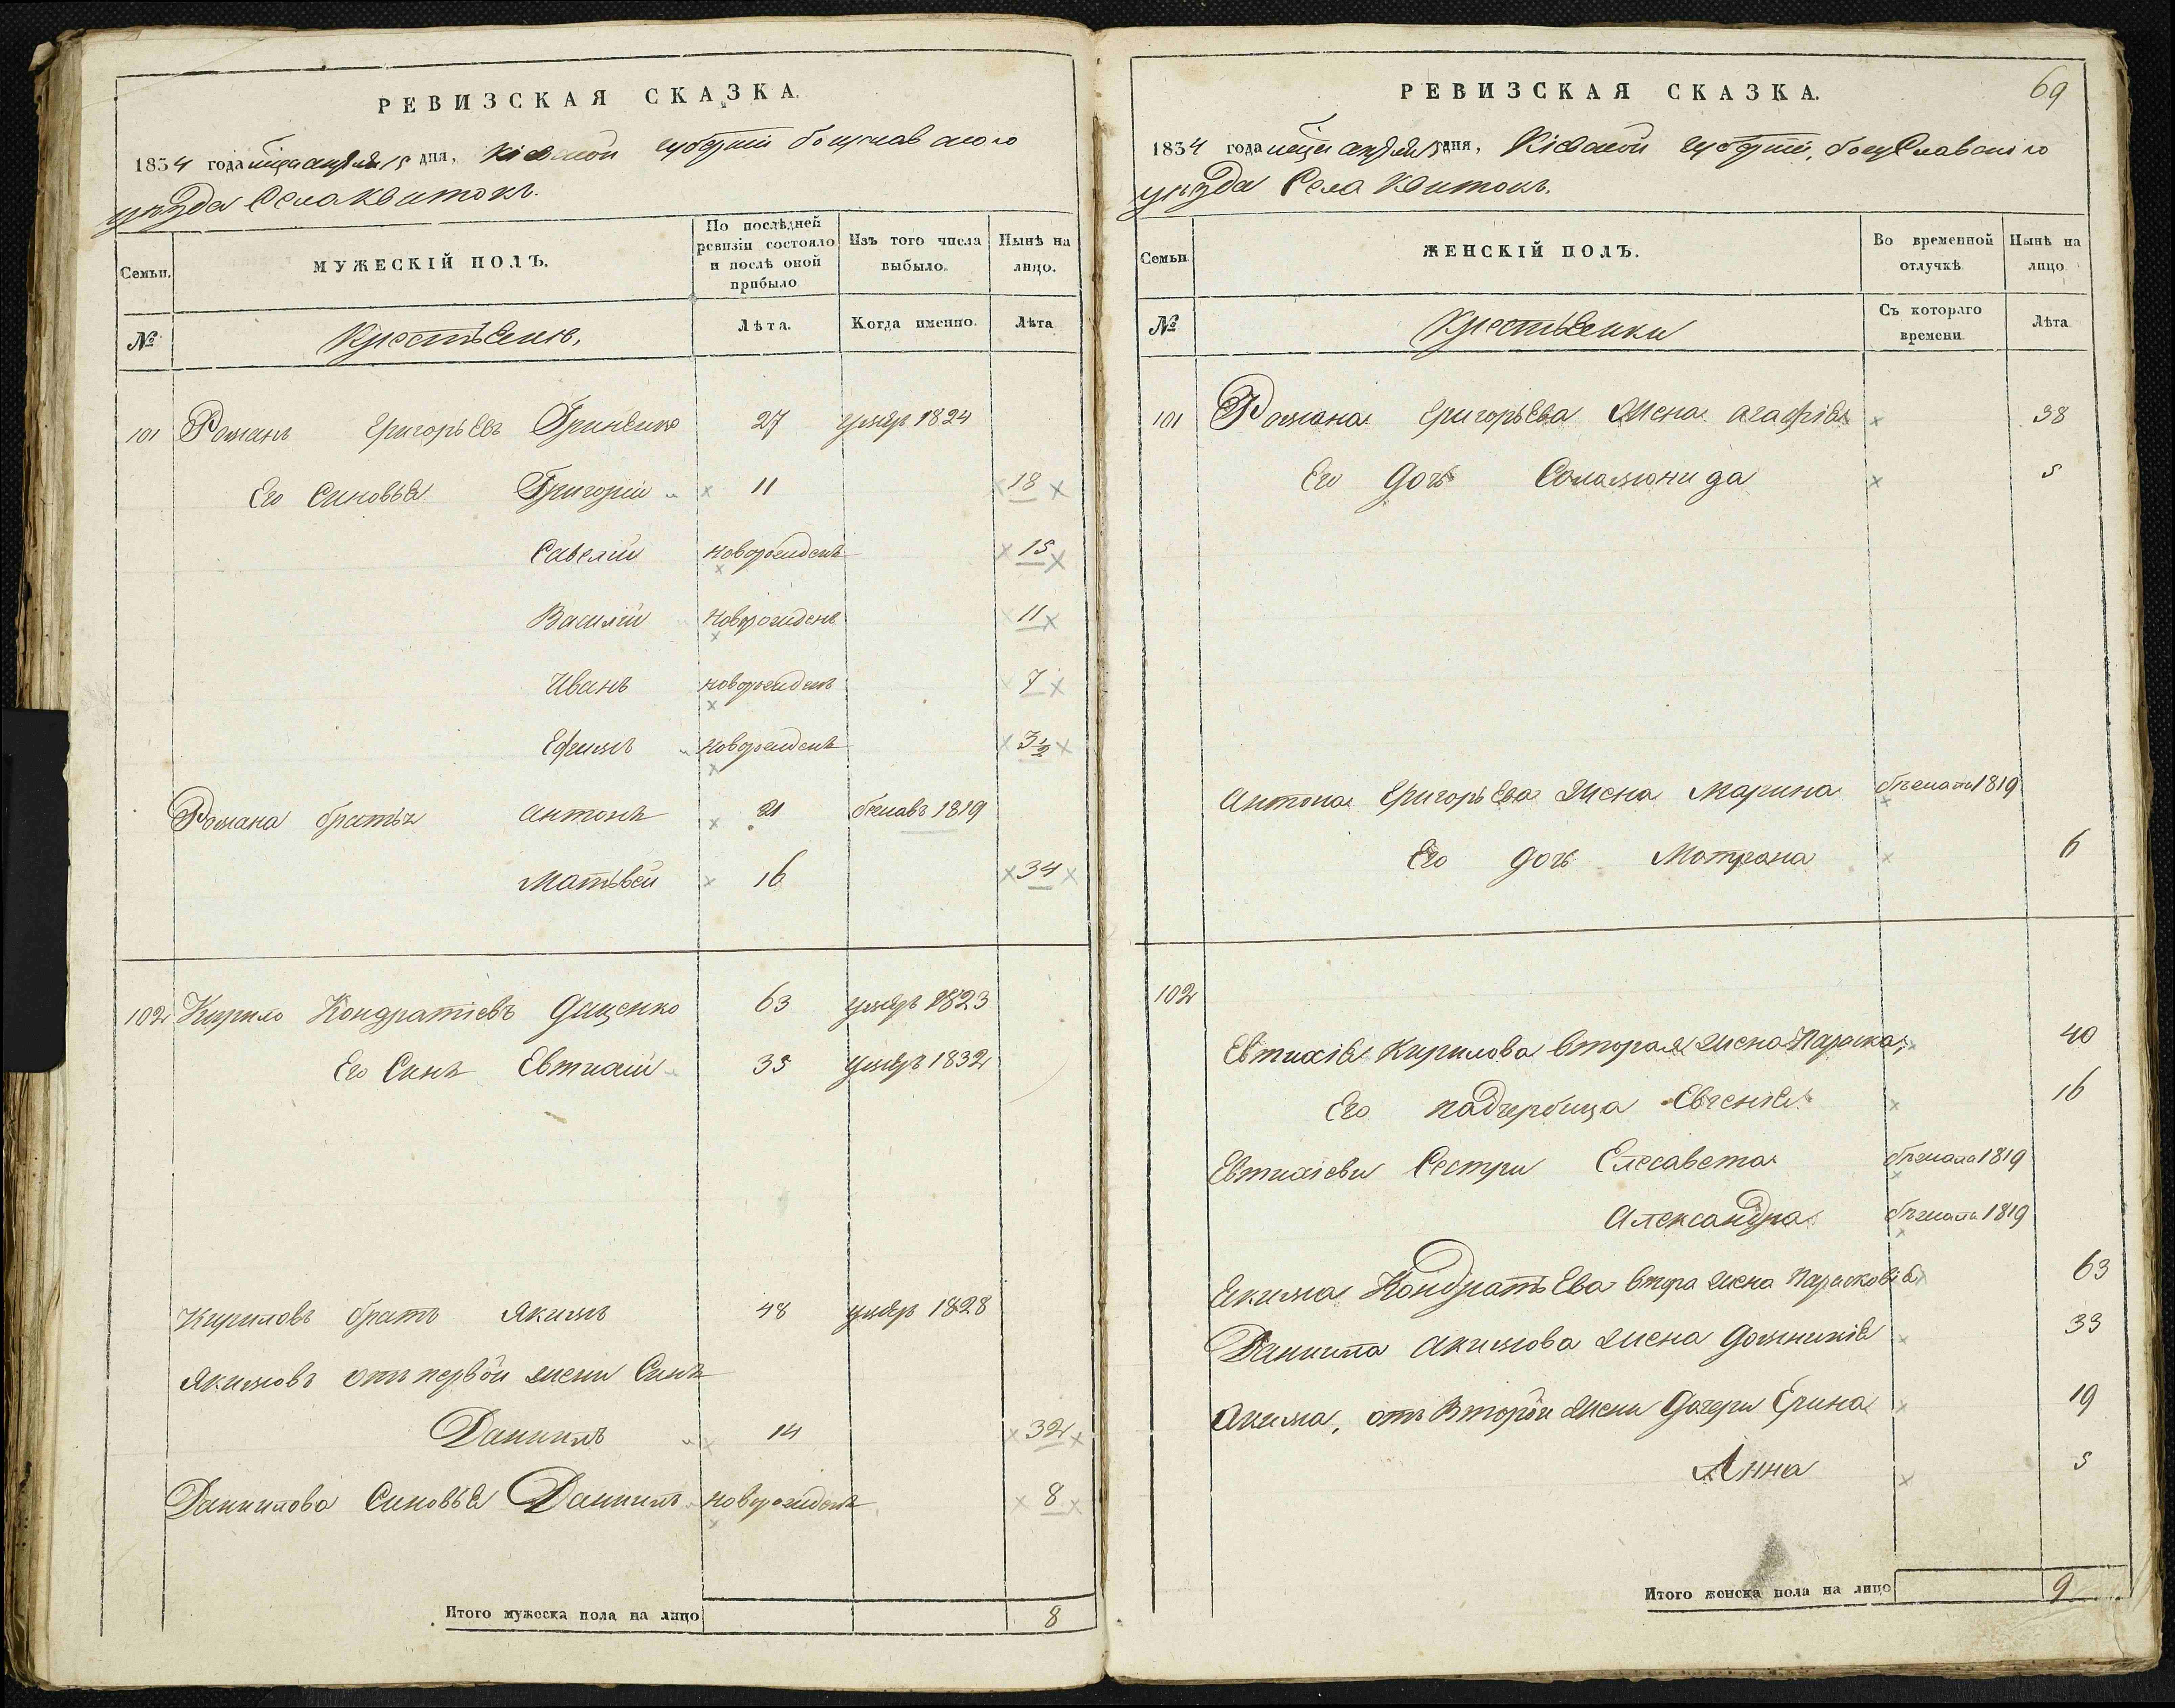 РЕВИЗСКАЯ СКАЗКА.
1834 года мѣсяца апреля 15 дня, Кіевской губерніи богуславского
уѣзда Села Квитокъ.
Семьи.
МУЖЕСКІЙ ПОЛЪ.
По послѣдней ревизіи состояло и послѣ оной прибыло
Изъ того числа выбыло.
Нынѣ на лицо.
№
Крестьяне.
Лѣта.
Когда именно.
Лѣта
101 Романъ Григорьевъ Гриненко 27 умеръ 1824
Его Синовья Григорій 11 18
Савелій новорожденъ 15
Василій новорожденъ 11
Иванъ новорожденъ 7
Ефимъ новорожденъ 3½
Романа братья антонъ 21 бежавъ 1819
Матвѣй 16 34
102 Кирило Кондратіевъ Дищенко 63 умеръ 1823
Его Синъ Евтихій 35 умеръ 1832
Кириловъ братъ Якимъ 48 умеръ 1828
Якимовъ отъ первой жени Синъ
Даниилъ 14 32
Даниилова Синовья Даниилъ новорожденъ 8
Итого мужеска пола на лицо 8
69
РЕВИЗСКАЯ СКАЗКА.
1834 года мѣсяца апреля 15 дня, Кіевской губерніи, богуславского
уѣзда Села Квитокъ.
Семьи
ЖЕНСКІЙ ПОЛЪ.
Во временной отлучкѣ
Нынѣ на лицо
№
Крестьянки
Съ котораго времени.
Лѣта
101 Романа Григорьева жена агафія 38
Его дочь Саламонида 5
антона Григорьева жена Марина бѣжала 1819
Его дочь Мотрона 6
102
Евтихія Кирилова вторая жена Параска 40
Его падчерица Евгенія 16
Евтихіеви Сестри Елесавета бѣжала 1819
Александра бѣжала 1819
Екима Кондратьева втора жена Парасковія 63
Даниила акимова жена домникія 33
акима, отъ второй жени дочери Ерина 19
Анна 5
Итого женска пола на лицо 9